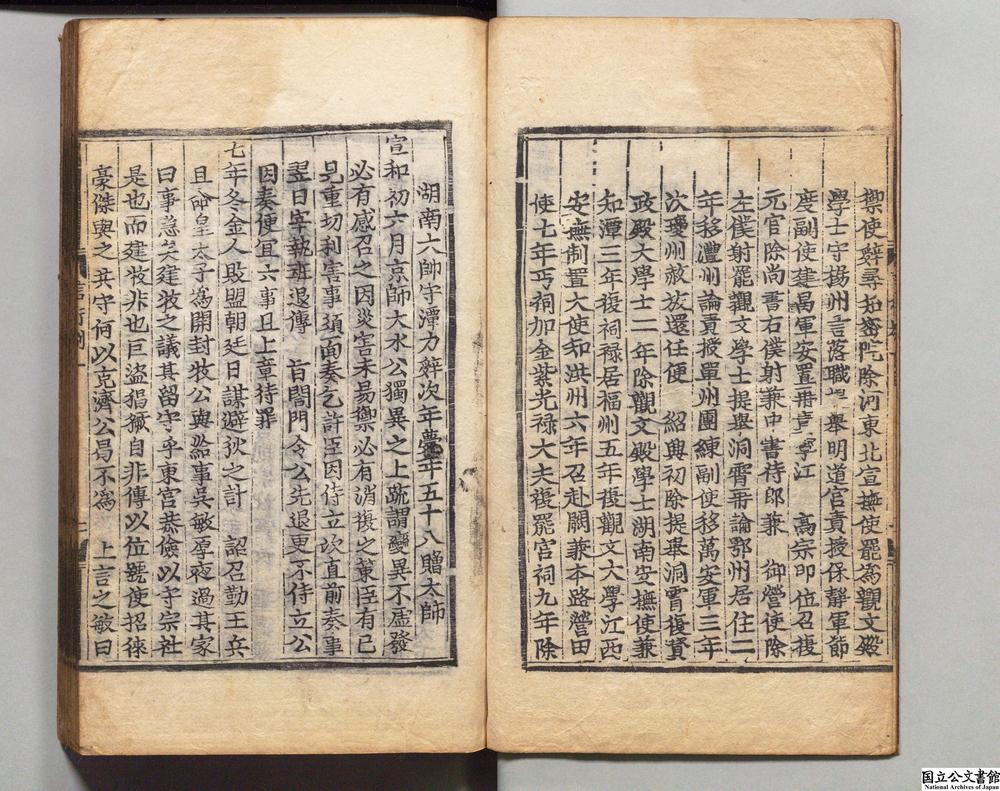 禦使辭尋知密院除河東北宣撫使罷為觀文殿
學士守揚州言落職 舉明道宮責授保靜軍節
度副使建昌軍安置再 寧江　高宗即位召復
元官除尚書右僕射兼中書侍郎兼　御營使除
左僕射罷觀文學士提舉洞霄再論鄂州居住二
年移澧州論責授單州團練副使移萬安軍三年
次瓊州赦放還任便　紹興初除提舉洞霄復資
政殿大學士二年除觀文殿學士湖南安撫使兼
知潭三年復祠祿居福州五年復觀文大學江西
安撫制置大使知洪州六年召赴闕兼本路營田
使七年丐祠加金紫光祿大夫復罷宮祠九年除
湖南大帥守潭力辭次年薨年五十八贈太師
宣和初六月京師大水公獨異之上疏謂變異不虛發
必有感召之因災害未易禦必有消復之策臣有己
見重切利害事須面奏乞許臣因侍立次直前奏事
翌日宰執班退傳　旨閤門令公先退更不侍立公
因奏便宜六事且上章待罪
七年冬金人敗盟朝廷日謀避狄之計　詔召勤王兵
且命皇太子為開封牧公與給事吳敏厚夜過其家
曰事急矣建牧之議其留守乎東宮恭儉以守宗社
是也而建牧非也巨盜猖獗自非傳以位號使招徠
豪傑與之共守何以克濟公曷不為　上言之敏曰
国立公文書館
National Archives of Japan